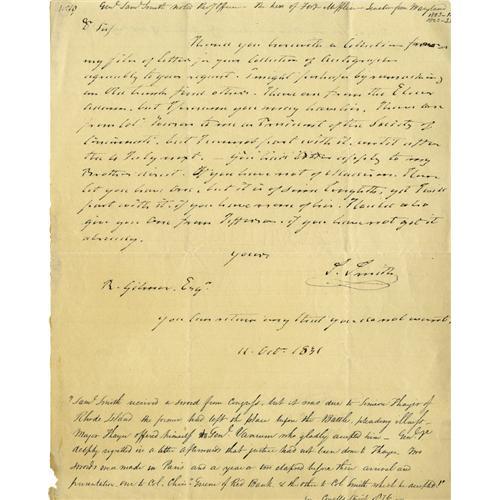 Genl Saml Smith noted Rev. Officer - the hero of Fort Mifflin - Senator from Maryland
Dr Sir
I send you herewith a Collection from
my file of letters, for your Collection of Autographs
agreeably to your request. I might perhaps by rumaging
an Old trunk find others. There are from the Elder
Adams, but I presume you may have his. There are
from Col. to me as President of the Society of
Cincinnati, but I cannot part with it, until after
the 4 July next. - You had apply to my
Brother direct. If you have not of Madison. I can
let you have one, but it is of some length, yet I will
part with it, if you have none of his. I could also
give you one from Jefferson, if you have not got it
already.
yours
S. Smith
R. Gilmor, Esqr
You can return any that you do not want.
11 Octr. 1831
"Saml Smith received a sword from Congress, but it was due to Simeon Thayer of
Rhode Island the former had left the place before the Battle, pleading illness.
Major Thayer offered himself to Genl Varnum who gladly accepted him - Genl
deeply regretted in a letter afterwards that justice had not been done to Thayer. Two
swords were made in Paris and a year or two elapsed before their arrival and
presentation one to Col. Greene of Red Bank & the other to Col Smith which he accepted!"